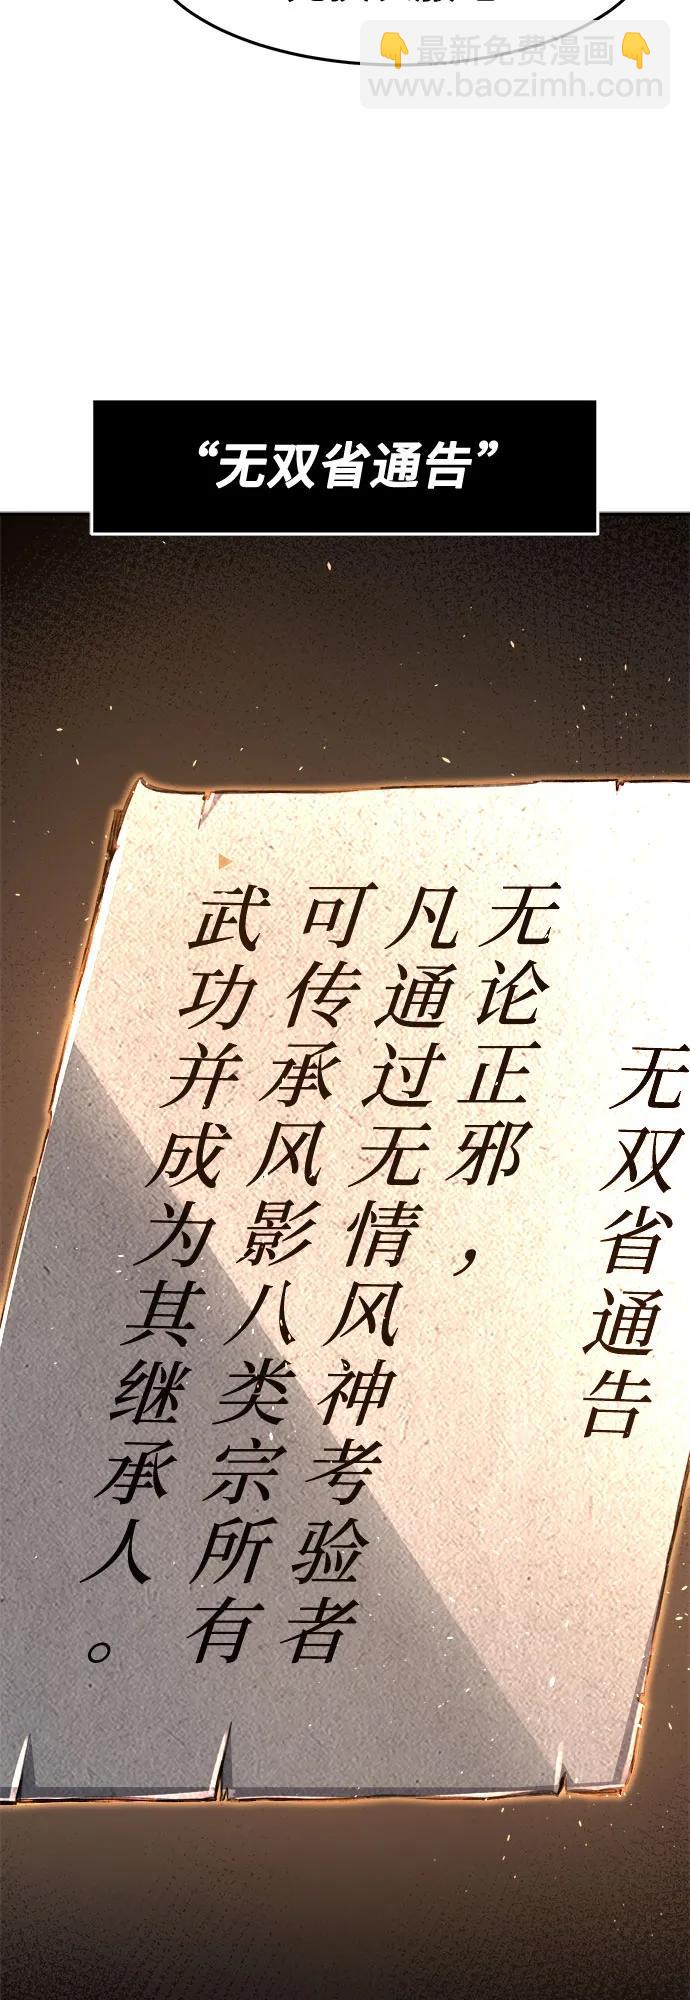 最新免费漫画
www.baozimh.com
“无双省通告”
无双省通告
无论正邪，
凡通过无情风神考验者
可传承风影八类宗所有
武功并成为其继承人。